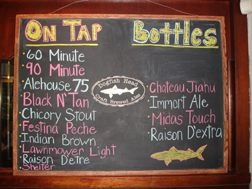 On Tap
60 Minute
90 Minute
Alehouse 75
Black N' Tan
Chicory Stout
Festina Peche
Indian Brown
Lawnmower Light
Raison D'Etre
Shelter
Dogfish Head
Craft Brewed Ales
Bottles
Chateau Jiahu
Immort Ale
Midas Touch
Raison D'extra